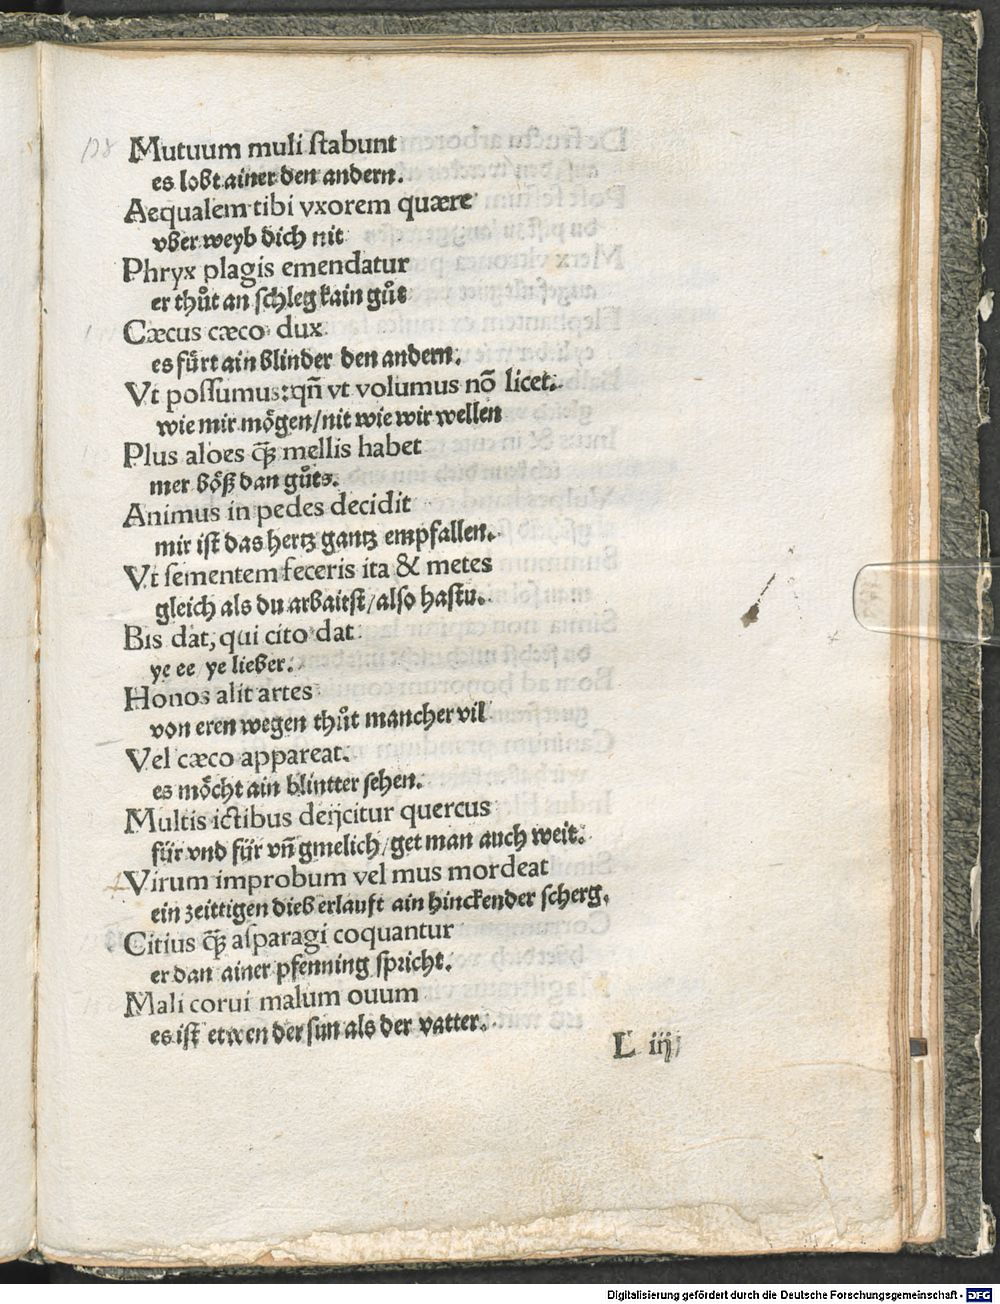 178
Mutuum muli ſtabunt
es lobt ainer den andern.
Aequalem tibi vxorem quære
vber weyb dich nit
Phryx plagis emendatur
er thůt an ſchleg kain gůt
Cæcus cæco dux
es fürt ain blinder den andern.
Vt poſſumus: qñ vt volumus nō licet.
wie mir mögen/nit wie wir wellen
Plus aloes q̄ȝ mellis habet
mer böß dan gůts.
Animus in pedes decidit
mir iſt das hertz gantz empfallen.
Vt ſementem feceris ita & metes
gleich als du arbaitſt/alſo haſtu.
Bis dat, qui cito dat
ye ee ye lieber.
Honos alit artes
von eren wegen thůt mancher vil
Vel cæco appareat.
es möcht ain blintter ſehen.
Multis ictibus deijcitur quercus
für vnd für vñ gmelich/get man auch weit.
Virum improbum vel mus mordeat
ein zeittigen dieb erlauft ain hinckender ſcherg.
Citius q̄ȝ aſparagi coquantur
er dan ainer pfenning ſpricht.
Mali corui malum ouum
es iſt etwen der ſun als der vatter.
L iij
Digitalisierung gefördert durch die Deutsche Forschungsgemeinschaft - DFG